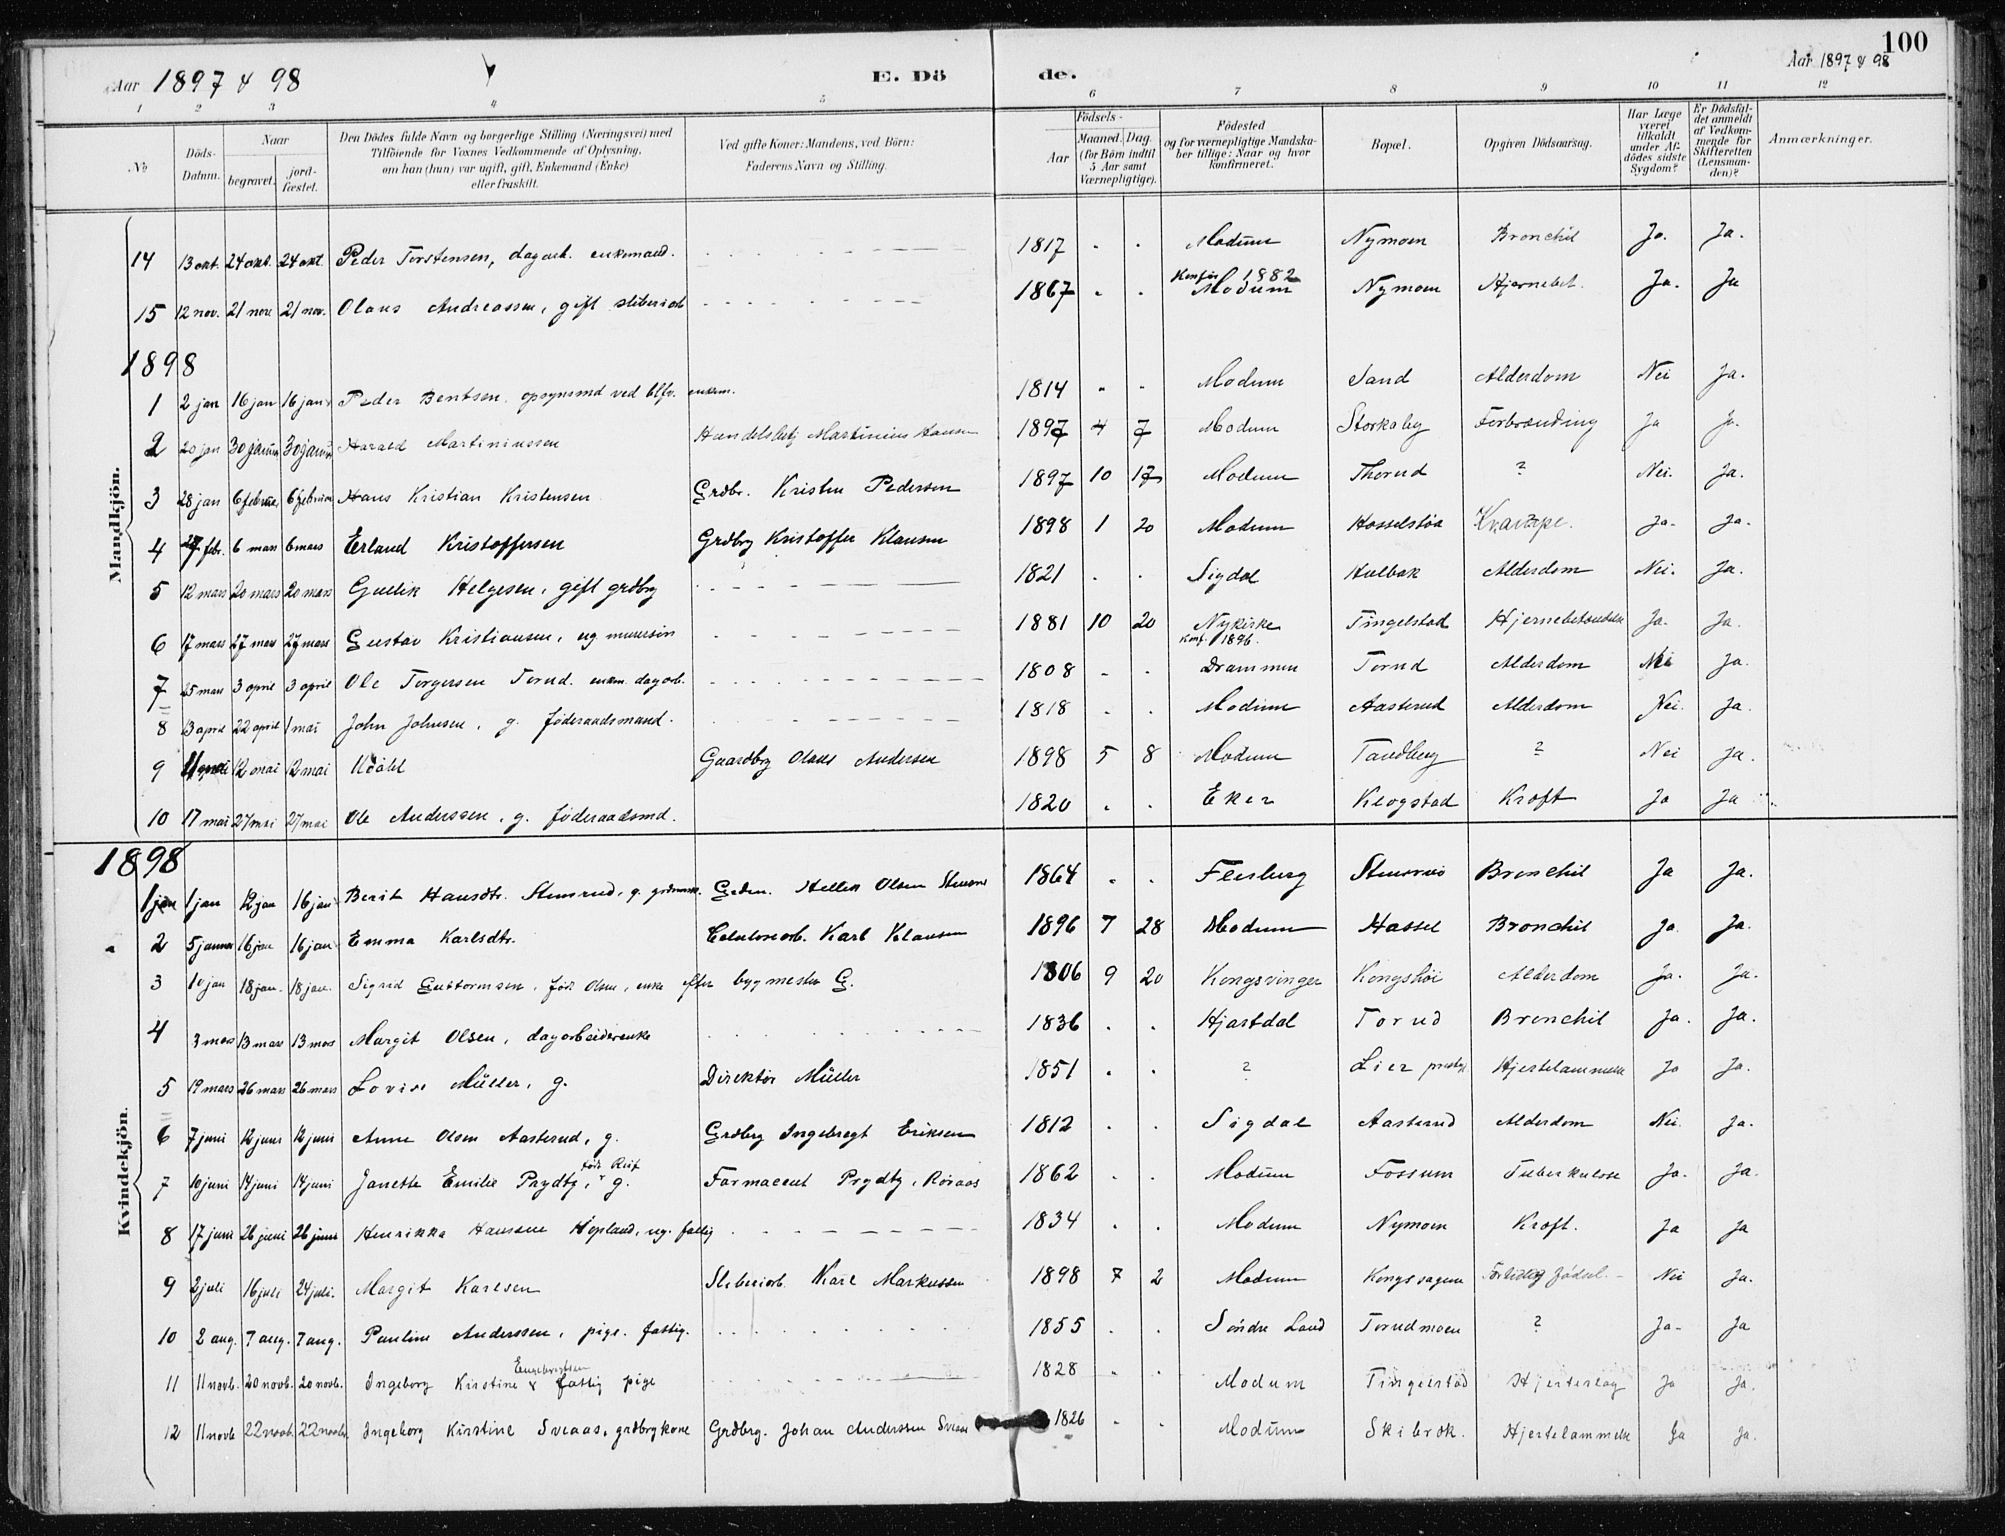 100
Aar 1897 & 98 E. Dö de. Aar 1897 & 98
1 2 3 4 5 6 7 8 9 10 11 12
№ Döds-Datum. Naar begravet. jord-fæstet. Den Dödes fulde Navn og borgerlige Stilling (Næringsvei) med Tilföiende for Voxnes Vedkommende af Oplysning, om han (hun) var ugift, gift, Enkemand (Enke) eller fraskilt. Ved gifte Koner: Mandens, ved Börn: Faderens Navn og Stilling. Födsels- Aar Maaned. Dag. (for Börn indtil 5 Aar samt Værnepligtige). Födested og for værnepligtige Mandska-ber tillige: Naar og hvor konfirmeret. Bopæl. Opgiven Dödsaarsag. Har Læge været tilkaldt under Af-dödes sidste Sygdom? Er Dödsfal-det anmeldt af Vedkom-mende for Skifteretten (Lensman-den)? Anmærkninger.
Mandkjön.
14 13 okt. 24 okt. 24 okt. Peder Torstensen, dagarb. enkemand. 1817 Modum Nymoen Bronchit Ja. Ja.
15 12 nov. 21 nov. 21 nov. Olaus Andreassen, gift sliberiarb 1867 Konfir 1882 Modum Nymoen Hjernebet. Ja. Ja
1898
1 2 jan 16 jan 16 jan Peder Bentsen opsynsmd ved blfv. enkem. 1814 Modum Sand Alderdom Nei Ja.
2 20 jan 30 januar 30 januar Harald Martiniussen Handelsbetj Martinius Hansen 1897 4 7 Modum Storkaby Forbrænding Ja Ja.
3 28 jan 6 februar 6 februar Hans Kristian Kristensen Grdbr. Kristen Pedersen 1897 10 17 Modum Thorud ? Nei. Ja.
4 27 febr. 6 mars 6 mars Erland Kristoffersen Grdbrg Kristoffer Klausen 1898 1 20 Modum Krampe. Ja. Ja.
5 12 mars 20 mars 20 mars Gullik Helgesen, gift grdbrg 1821 Sigdal Hulbak Alderdom Nei. Ja.
6 17 mars 27 mars 27 mars Gustav Kristiansen, ug. murersøn 1881 10 20 Nykirke Konf. 1896. Tingelstad Hjernebetændelse Ja. Ja.
7 25 mars 3 april 3 april Ole Torgersen Torud. enkm. dagarb. 1808 Drammen Torud Alderdom Nei Ja.
8 13 april 22 april 1 mai John Johnsen, g. föderaadsmand. 1818 Modum Aasterud Alderdom Nei. Ja.
9 12 mai 12 mai Udöbt Gaardbrg Olaus Andersen 1898 5 8 Modum Tandberg ? Nei Ja.
10 17 mai 27 mai 27 mai Ole Anderssen, g. föderaadsmd. 1820 Eker Klogstad Kræft Ja Ja
Kvindekjön.
1898
1 1 jan 12 jan 16 jan Berit Hansdtr. Stensrud, g. Olsen 1864 Flesberg Bronchit Ja Ja.
2 5 januar 16 jan 16 jan Emma Karlsdtr. Celulosearb. Karl Klausen 1896 7 28 Modum Hassel Bronchit Ja Ja.
3 10 jan 18 jan. 18 jan. Sigrid Guttormsen, född Olsen, enke efter bygmester G. 1806 9 20 Kongsvinger Kongshöi Alderdom Ja. Ja.
4 3 mars 13 mars 13 mars Margit Olsen, dagarbeiderenke 1836 Hjartdal Torud Bronchit Ja. Ja.
5 19 mars 26 mars 26 mars Lovise Müller, g. Direktör Müller 1851 ? Lier prestgj Hjertelammelse Ja Ja.
6 7 juni 12 juni 12 juni Anne Olsen Aasterud, g. Grdbrg Ingebregt Eriksen 1812 Sigdal Aasterud Alderdom Nei. Ja.
7 10 juni 14 juni 14 juni Janette Emilie Prydtz, född Reif g. Farmaceut Prydtz, Röraas 1862 Modum Fossum Tuberkulose Ja. Ja.
8 17 juni 26 juni 26 juni Henrikka Hansen Hopland, ug. fattig 1834 Modum Nymoen Kræft. Ja Ja
9 2 juli 16 juli 24 juli. Margit Karlsen Sliberiarb. Karl Markussen 1898 7 2 Modum Kongssagene Fortidlig födsel. Nei Ja.
10 2 aug. 7 aug. 7 aug. Pauline Anderssen, pige. fattig. 1855 Söndre Land Torudmoen ? Ja- Ja
11 11 novb. 20 novb. 20 novb. Ingeborg Kirstine Engebretsen fattig pige 1828 Modum Tingelstad Hjerteslag Ja Ja.
12 11 novb 22 novb. 22 novbr Ingeborg Kirstine Sveaas, grdbrgkone Grdbrg. Johan Anderssen Sveaas 1826 Modum Skibræk. Hjertelammelse Ja Ja.